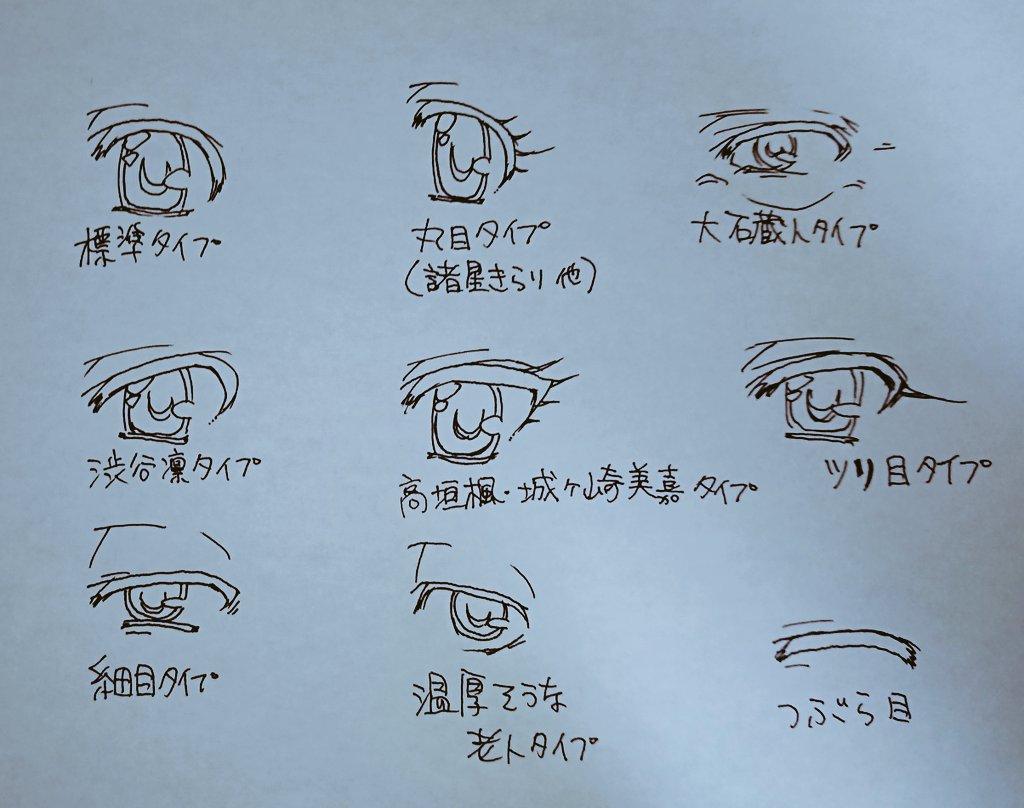 標準タイプ
丸目タイプ
(諸星きらり他)
大石蔵人タイプ
渋谷凛タイプ
高垣楓・城ヶ崎美嘉タイプ
ツリ目タイプ
細目タイプ
温厚そうな
老人タイプ
つぶら目